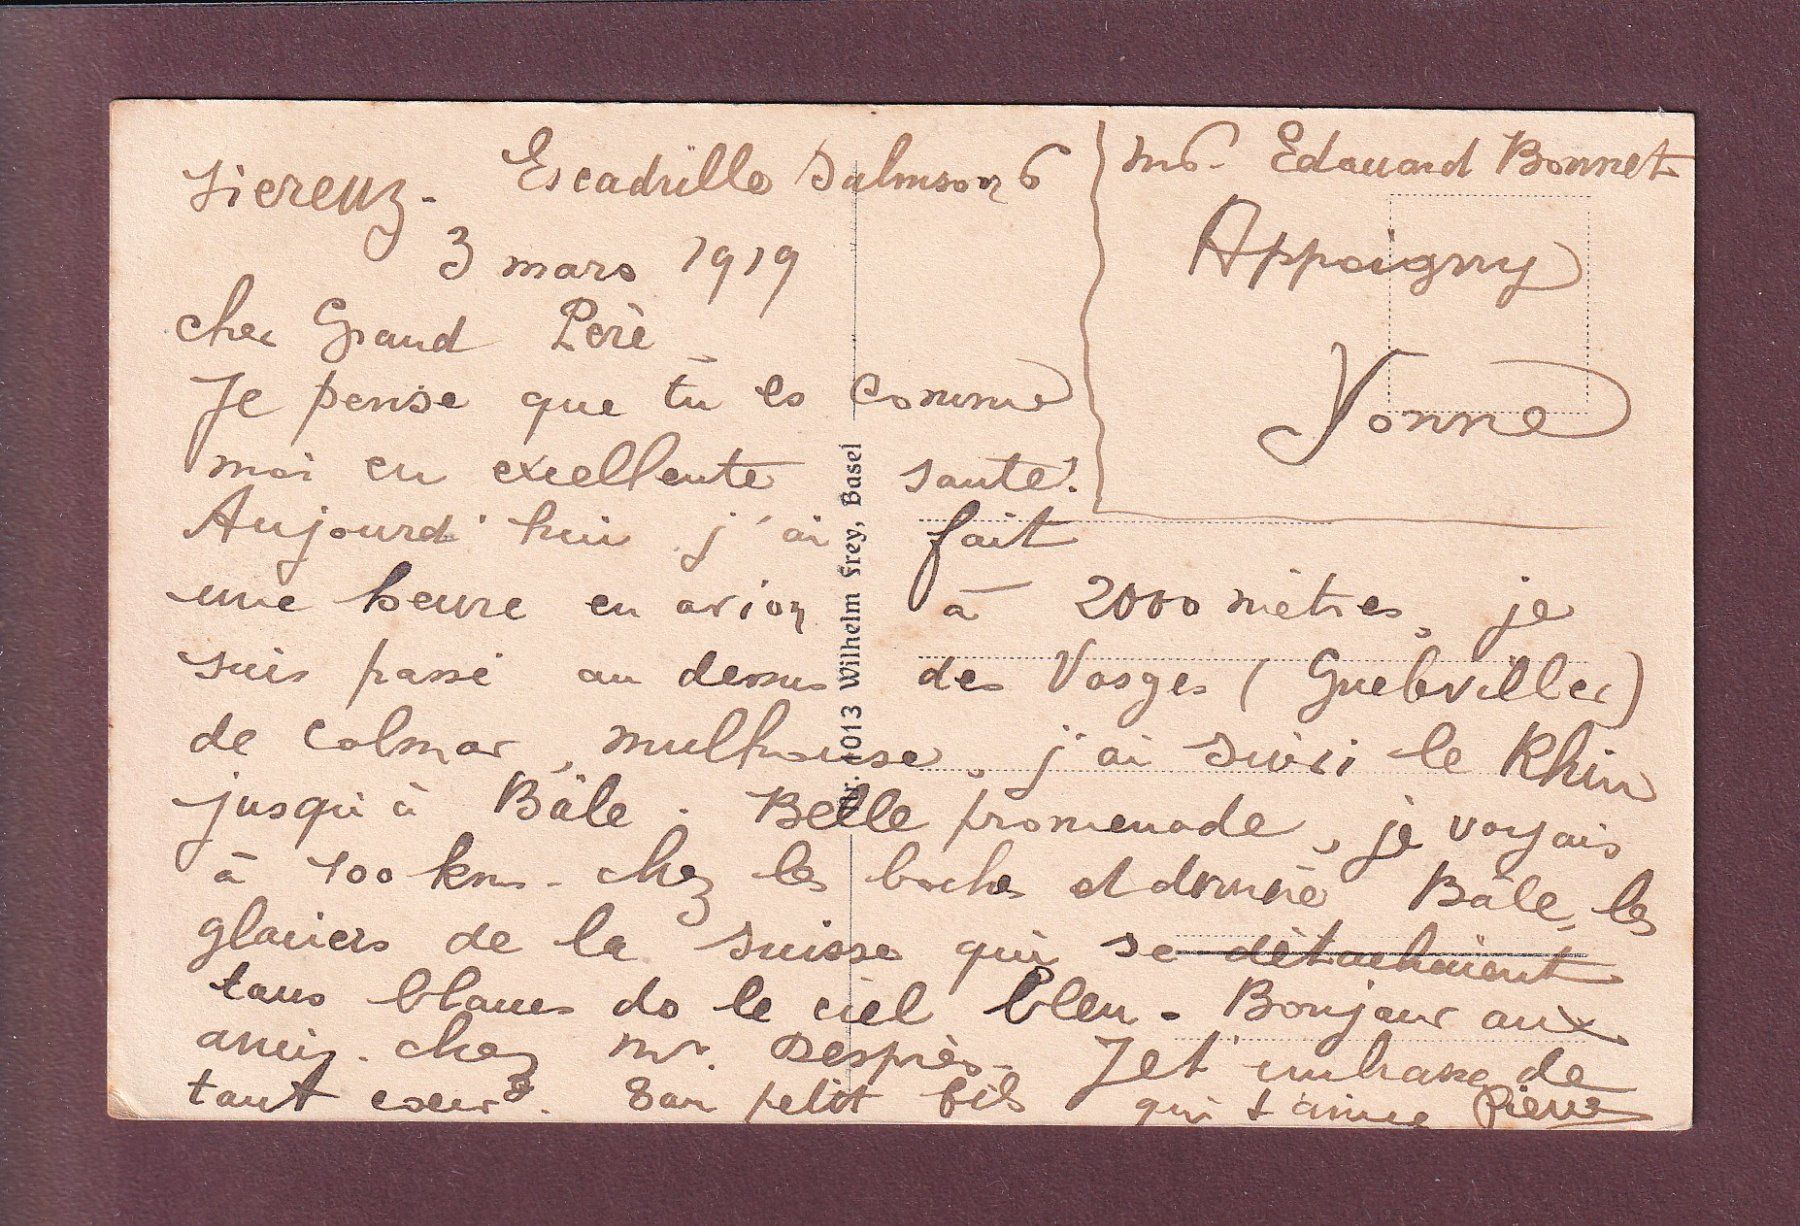 Sierenz. Escadrille Salmson 6
3 mars 1919
cher Grand Père
Je pense que tu es comme
moi en exellente santé.
Aujourd'hui j'ai fait
une heure en avion à 2000 mètres, je
suis passé au dessus des Vosges (Guebviller)
de Colmar, mulhouse, j'ai suivi le Rhin
jusqu'à Bâle. Belle promenade, je voyais
à 100 km. chez les boches et derrière Bâle, les
glaciers de la suisse qui se détachaient
tous blancs ds le ciel bleu. Bonjour aux
amis. chez mr. Desprès. Je t'embrasse de
tout coeur. Ton petit fils qui t'aime Pierre
mr. Edouard Bonnet
Appoigny
Yonne
Nr. 1013 Wilhelm Frey, Basel